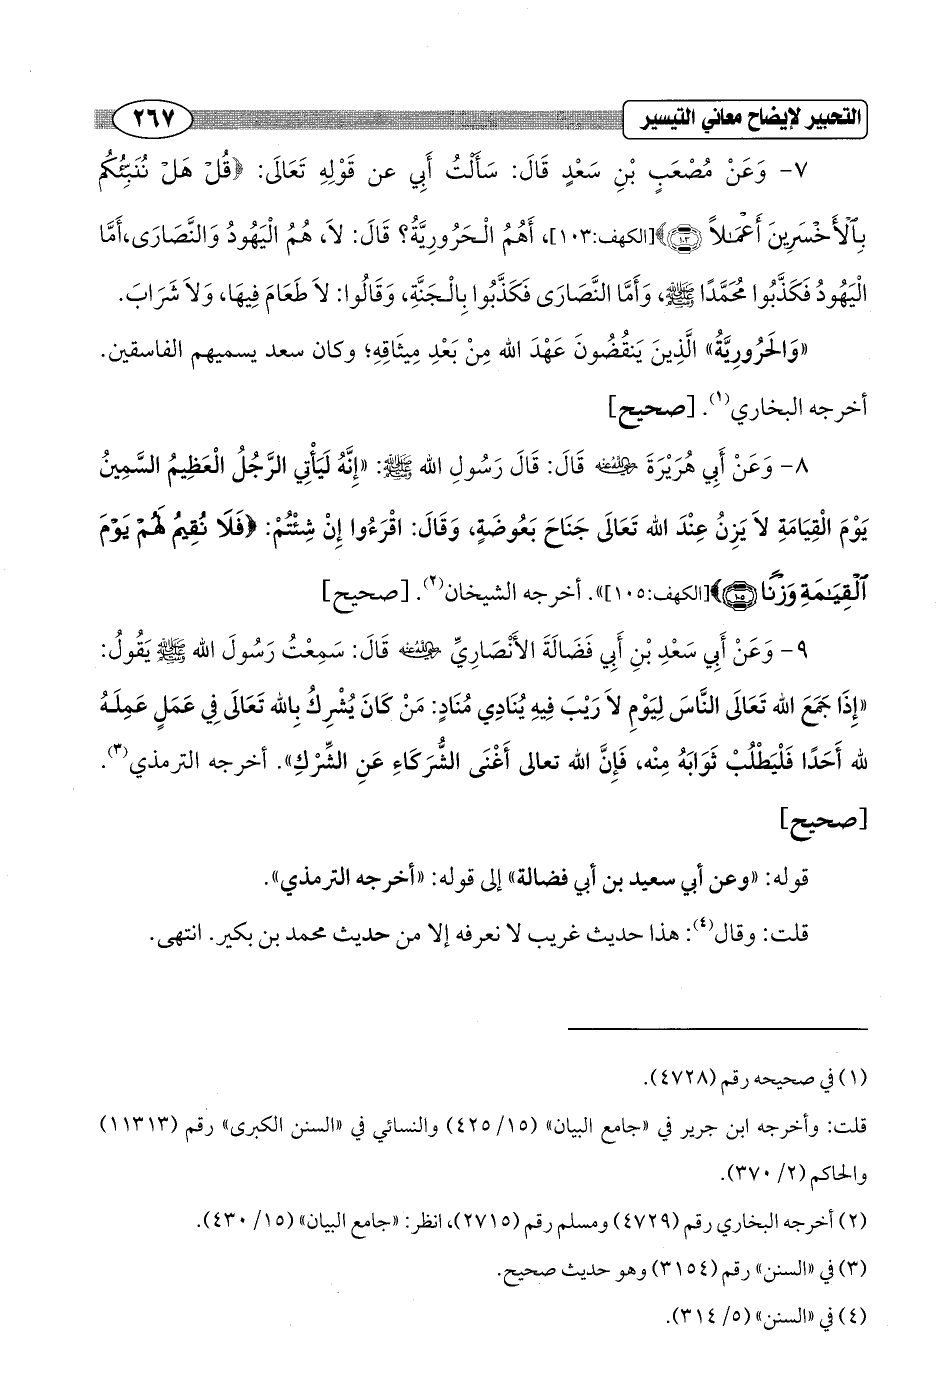 التحبير لإيضاح معاني التيسير ٢٦٧
٧- وَعَنْ مُصْعَبٍ بْنِ سَعْدٍ قَالَ: سَأَلْتُ أَبِي عن قَوْلِهِ تَعَالَى: ﴿قُلْ هَلْ نُنَبِّئُكُم
بِٱلۡأَخۡسَرِينَ أَعۡمَٰلًا ﴿١٠٣﴾﴾[الكهف:١٠٣]، أَهُمُ الْحَرُورِيَّةُ؟ قَالَ: لاَ، هُمُ الْيَهُودُ وَالنَّصَارَى،أَمَّا
الْيَهُودُ فَكَذَّبُوا مُحَمَّدًا ﷺ، وَأَمَّا النَّصَارَى فَكَذَّبُوا بِالْجَنَّةِ، وَقَالُوا: لاَ طَعَامَ فِيهَا، وَلاَ شَرَابَ.
«وَالحَرُورِيَّةُ» الَّذِينَ يَنقُضُونَ عَهْدَ الله مِنْ بَعْدِ مِيثَاقِهِ؛ وكان سعد يسميهم الفاسقين.
أخرجه البخاري(١). [صحيح]
٨- وَعَنْ أَبِي هُرَيْرَةَ رضي الله عنه قَالَ: قَالَ رَسُولِ الله ﷺ: «إِنَّهُ لَيَأْتِي الرَّجُلُ الْعَظِيمُ السَّمِينُ
يَوْمَ الْقِيَامَةِ لاَ يَزِنُ عِنْدَ الله تَعَالَى جَنَاحَ بَعُوضَةٍ، وَقَالَ: اقْرَءُوا إِنْ شِئْتُمْ: ﴿فَلَا نُقِيمُ لَهُمۡ يَوۡمَ
ٱلۡقِيَٰمَةِ وَزۡنٗا ﴿١٠٥﴾﴾[الكهف:١٠٥]». أخرجه الشيخان(٢). [صحيح]
٩- وَعَنْ أَبِي سَعْدٍ بْنِ أَبِي فَضَالَةَ الأَنْصَارِيِّ رضي الله عنه قَالَ: سَمِعْتُ رَسُولَ الله ﷺ يَقُولُ:
«إِذَا جَمَعَ الله تَعَالَى النَّاسَ لِيَوْمٍ لاَ رَيْبَ فِيهِ يُنَادِي مُنَادٍ: مَنْ كَانَ يُشْرِكُ بِالله تَعَالَى فِي عَمَلٍ عَمِلَهُ
لله أَحَدًا فَلْيَطْلُبْ ثَوَابَهُ مِنْه، فَإِنَّ الله تعالى أَغْنَى الشُّرَكَاءِ عَنِ الشِّرْكِ». أخرجه الترمذي(٣).
[صحيح]
قوله: «وعن أبي سعيد بن أبي فضالة» إلى قوله: «أخرجه الترمذي».
قلت: وقال(٤): هذا حديث غريب لا نعرفه إلا من حديث محمد بن بكير. انتهى.
(١) في صحيحه رقم (٤٧٢٨).
قلت: وأخرجه ابن جرير في «جامع البيان» (١٥/ ٤٢٥) والنسائي في «السنن الكبرى» رقم (١١٣١٣)
والحاكم (٢/ ٣٧٠).
(٢) أخرجه البخاري رقم (٤٧٢٩) ومسلم رقم (٢٧١٥)، انظر: «جامع البيان» (١٥/ ٤٣٠).
(٣) في «السنن» رقم (٣١٥٤) وهو حديث صحيح.
(٤) في «السنن» (٥/ ٣١٤).